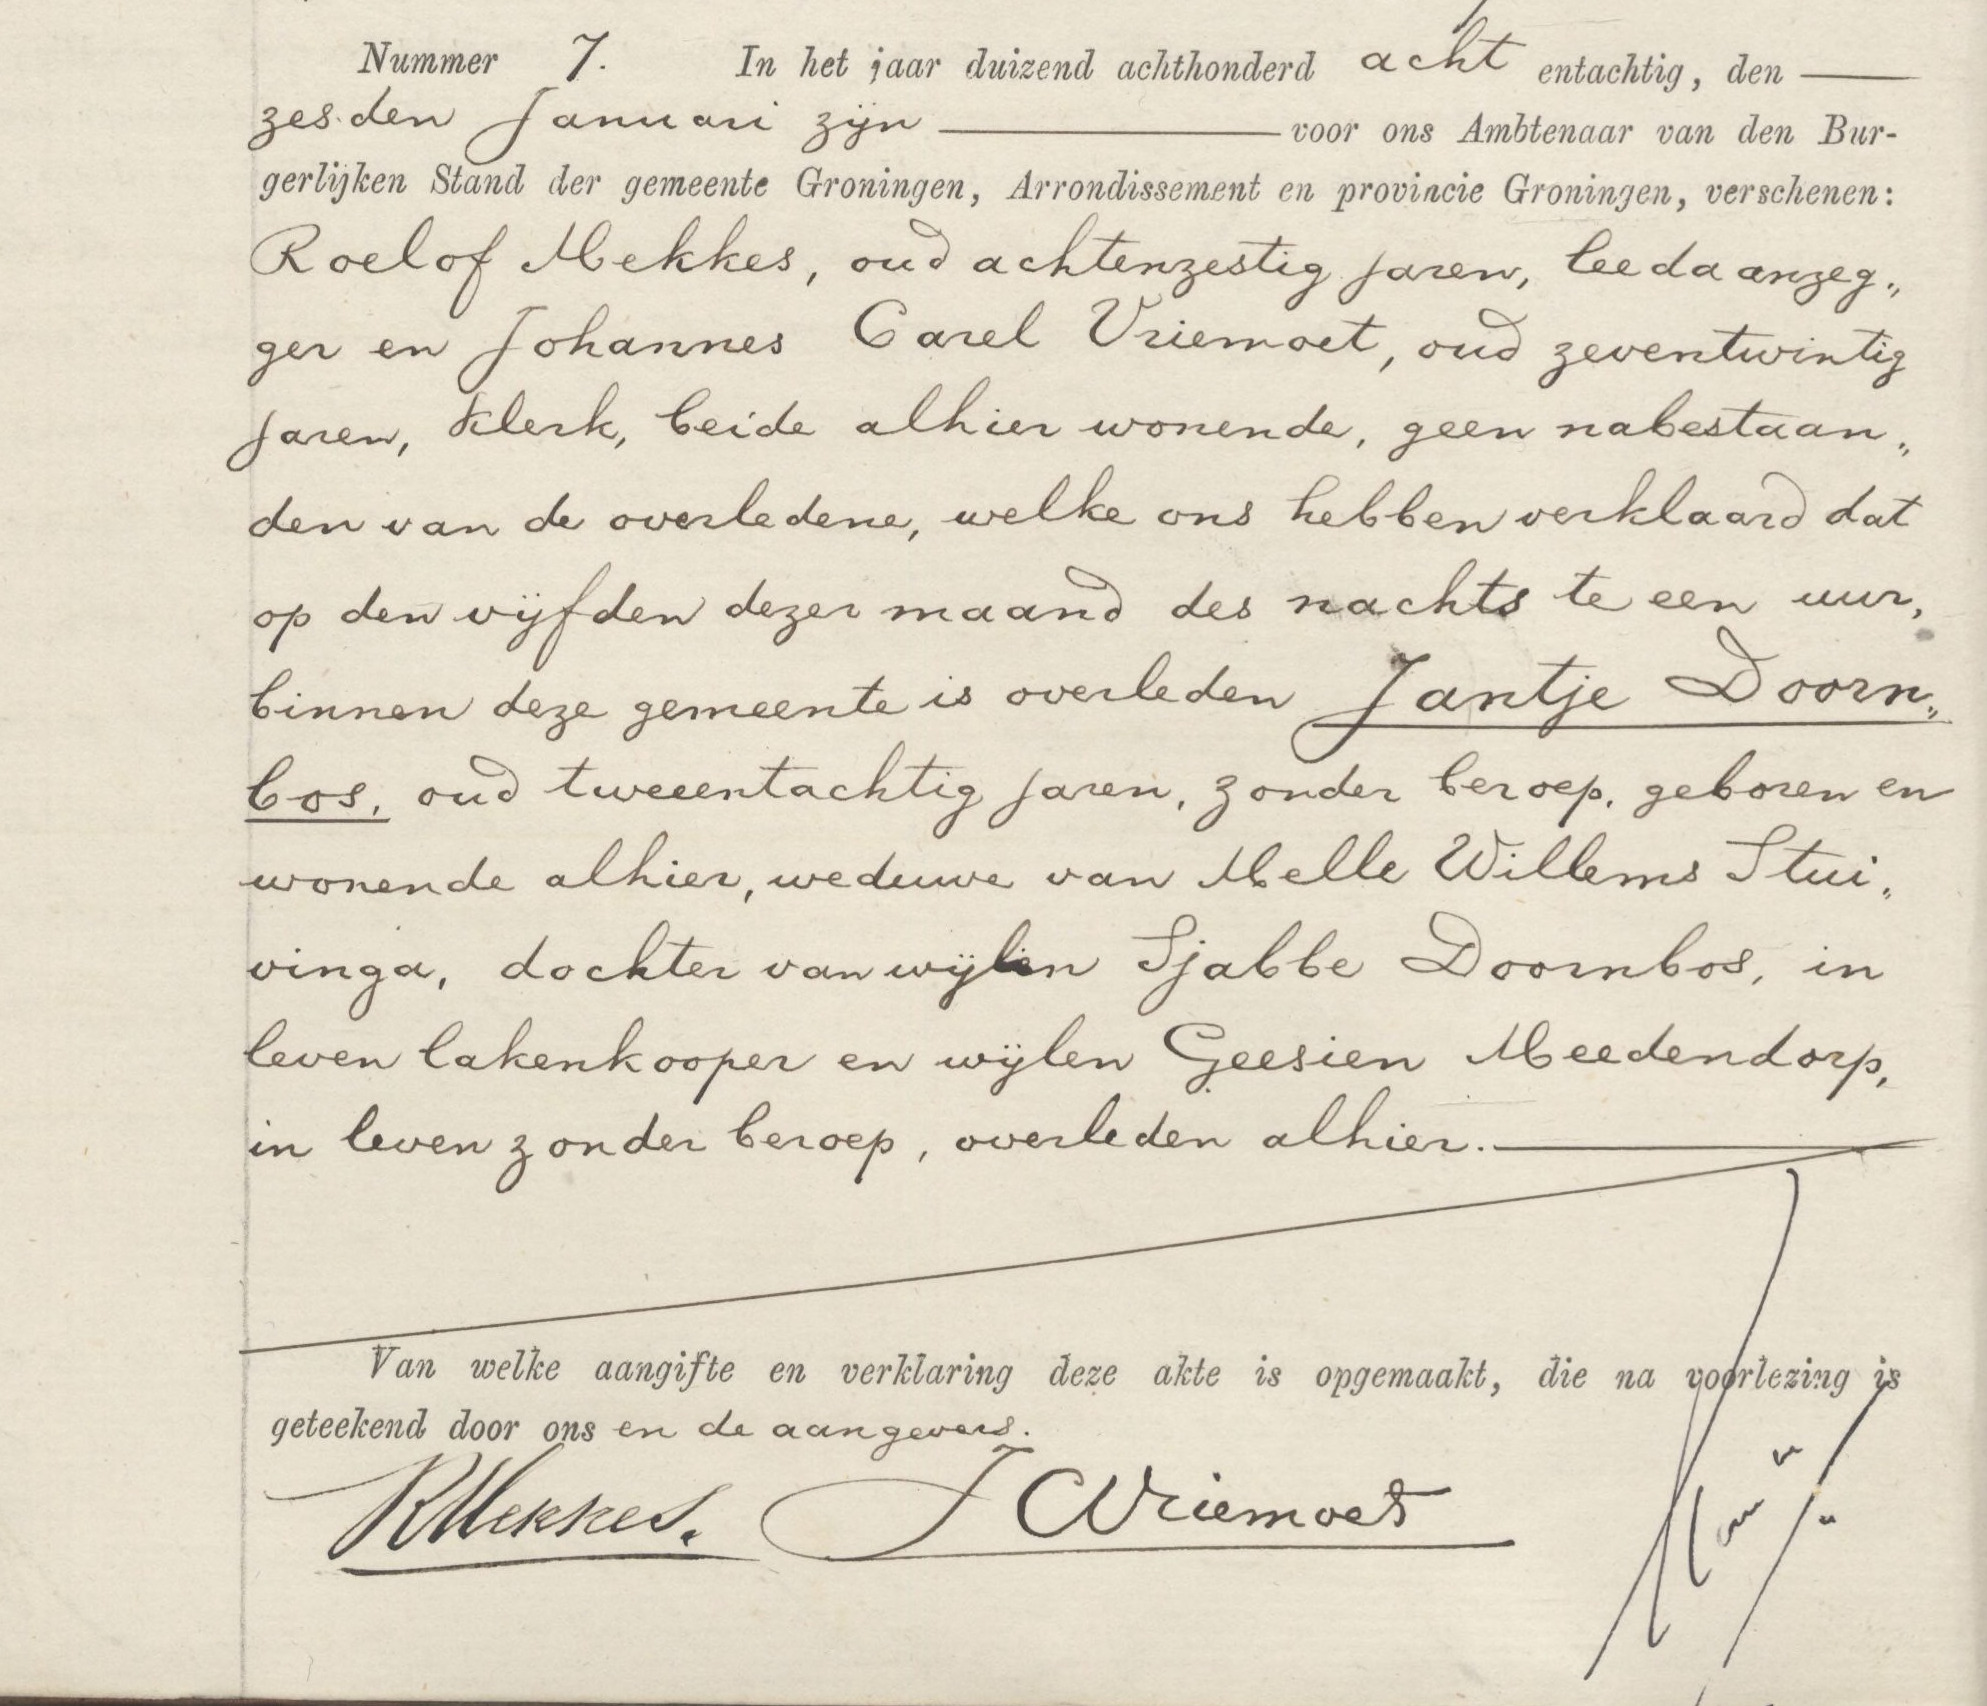 Nummer 7. In het jaar duizend achthonderd acht entachtig, den
zesden Januari zijn voor ons Ambtenaar van den Bur-
gerlijken Stand der gemeente Groningen, Arrondissement en provincie Groningen, verschenen:
Roelof Mekkes, oud achtenzestig jaren, leedaanzeg„
ger en Johannes Carel Vriemoet, oud zeventwintig
jaren, klerk, beide alhier wonende, geen nabestaan„
den van de overledene, welke ons hebben verklaard dat
op den vijfden dezer maand des nachts te een uur,
binnen deze gemeente is overleden Jantje Doorn„
bos, oud tweeentachtig jaren, zonder beroep, geboren en
wonende alhier, weduwe van Melle Willems Stui„
vinga, dochter van wijlen Sjabbe Doornbos, in
leven lakenkooper en wijlen Geesien Meedendorp,
in leven zonder beroep, overleden alhier.
Van welke aangifte en verklaring deze akte is opgemaakt, die na voorlezing is
geteekend door ons en de aangevers.
RMekkes. J C Vriemoet